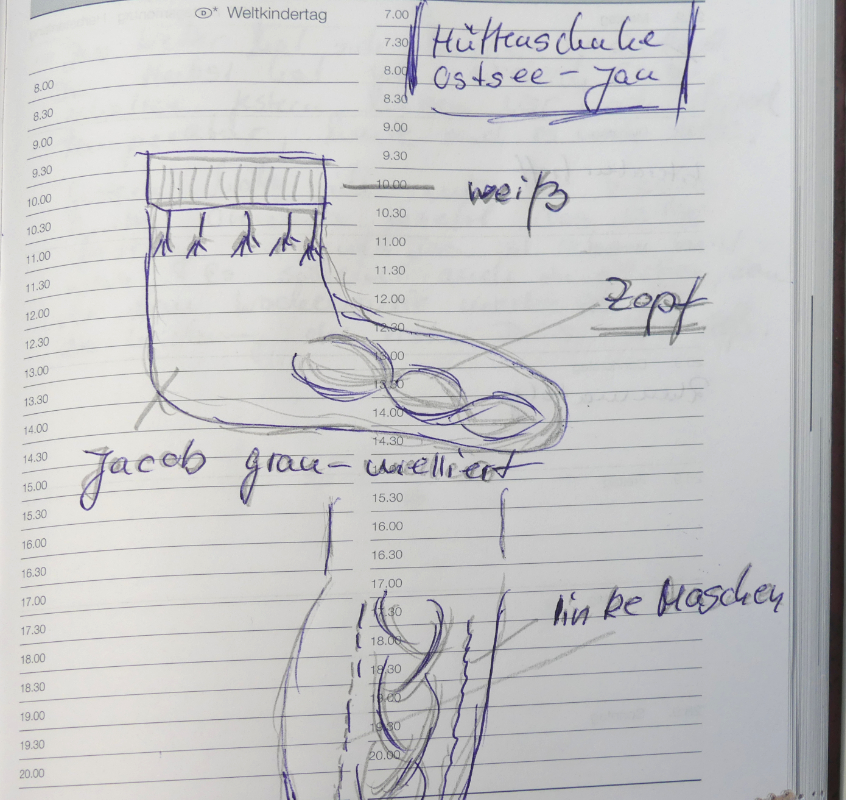 D* Weltkindertag
Hüttenschuhe
Ostsee – Jan
weiß
Zopf
Jacob grau-melliert
linke Maschen
8.00
8.30
9.00
9.30
10.00
10.30
11.00
11.30
12.00
12.30
13.00
13.30
14.00
14.30
15.00
15.30
16.00
16.30
17.00
17.30
18.00
18.30
19.00
19.30
20.00
7.00
7.30
8.00
8.30
9.00
9.30
10.00
10.30
11.00
11.30
12.00
12.30
13.00
13.30
14.00
14.30
15.30
16.00
16.30
17.00
17.30
18.00
18.30
19.00
19.30
20.00